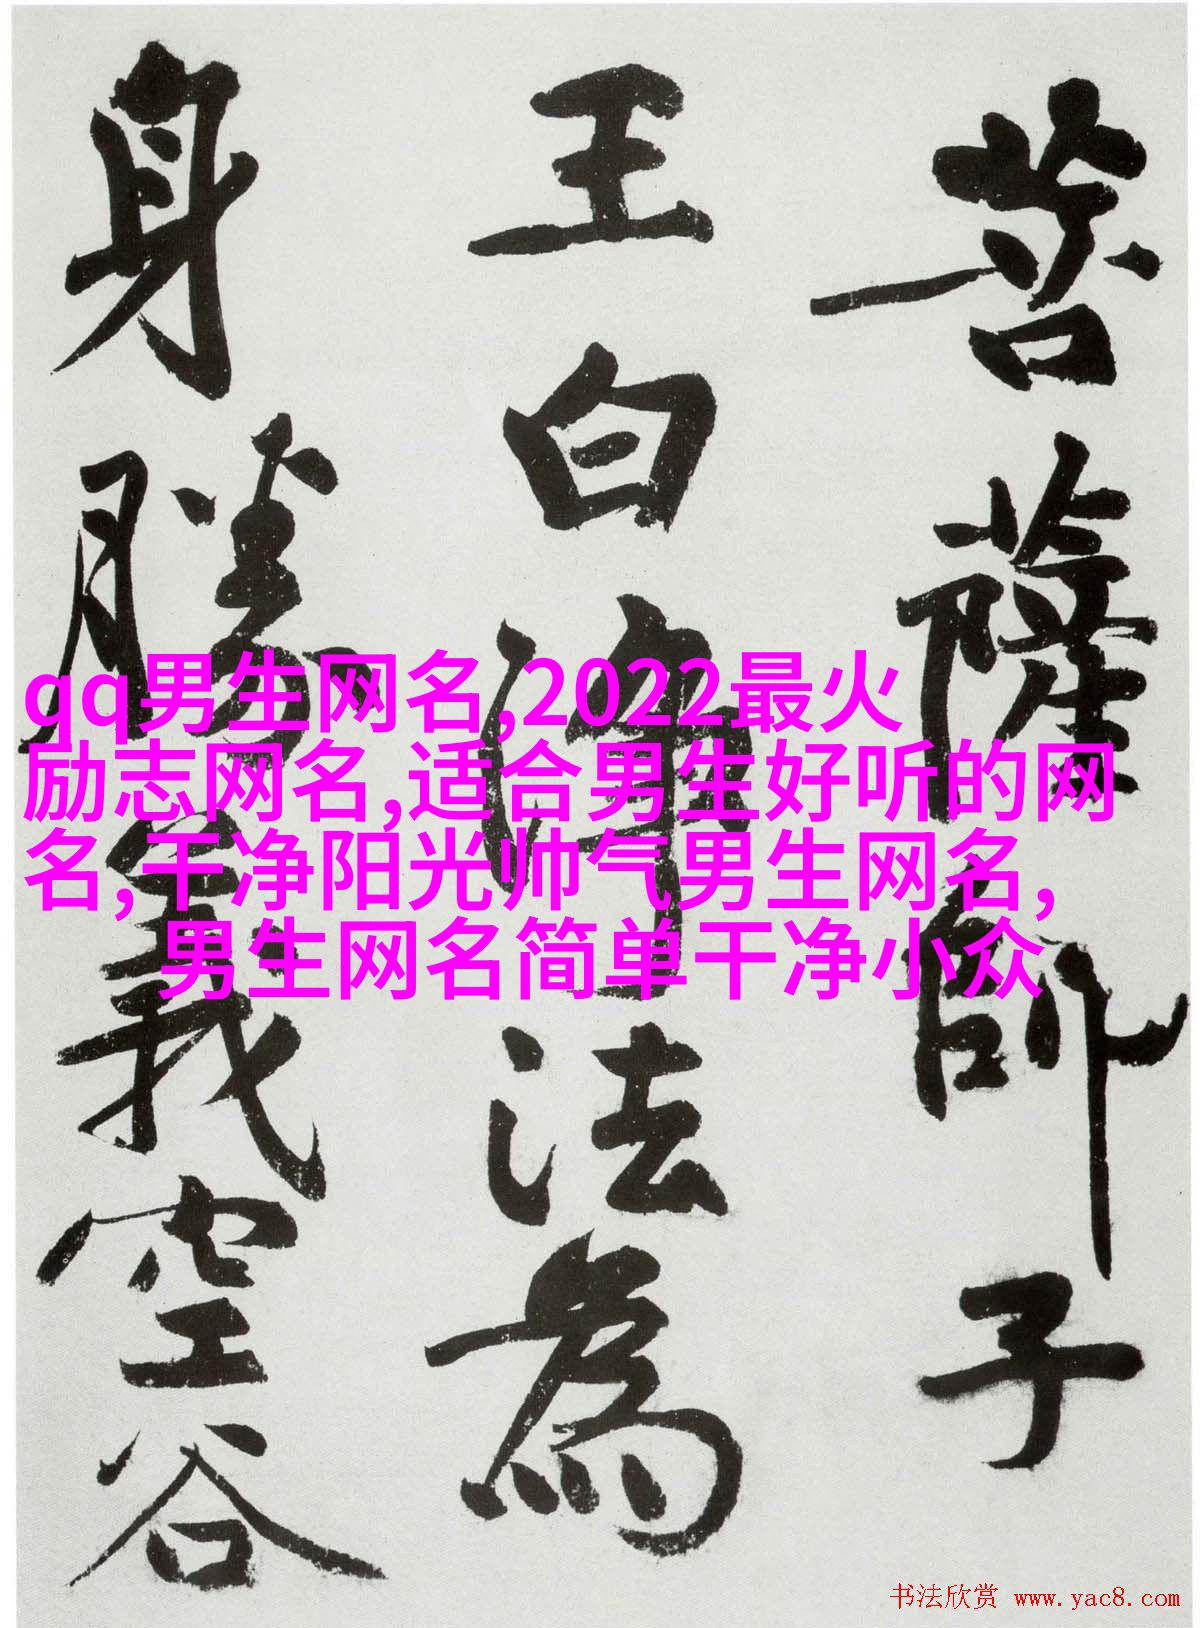 菩薩師子
王白淨法為
身勝義空谷
qq男生网名,2022最火
励志网名,适合男生好听的网
名,干净阳光帅气男生网名,
男生网名简单干净小众
书法欣赏 www.yac8.com